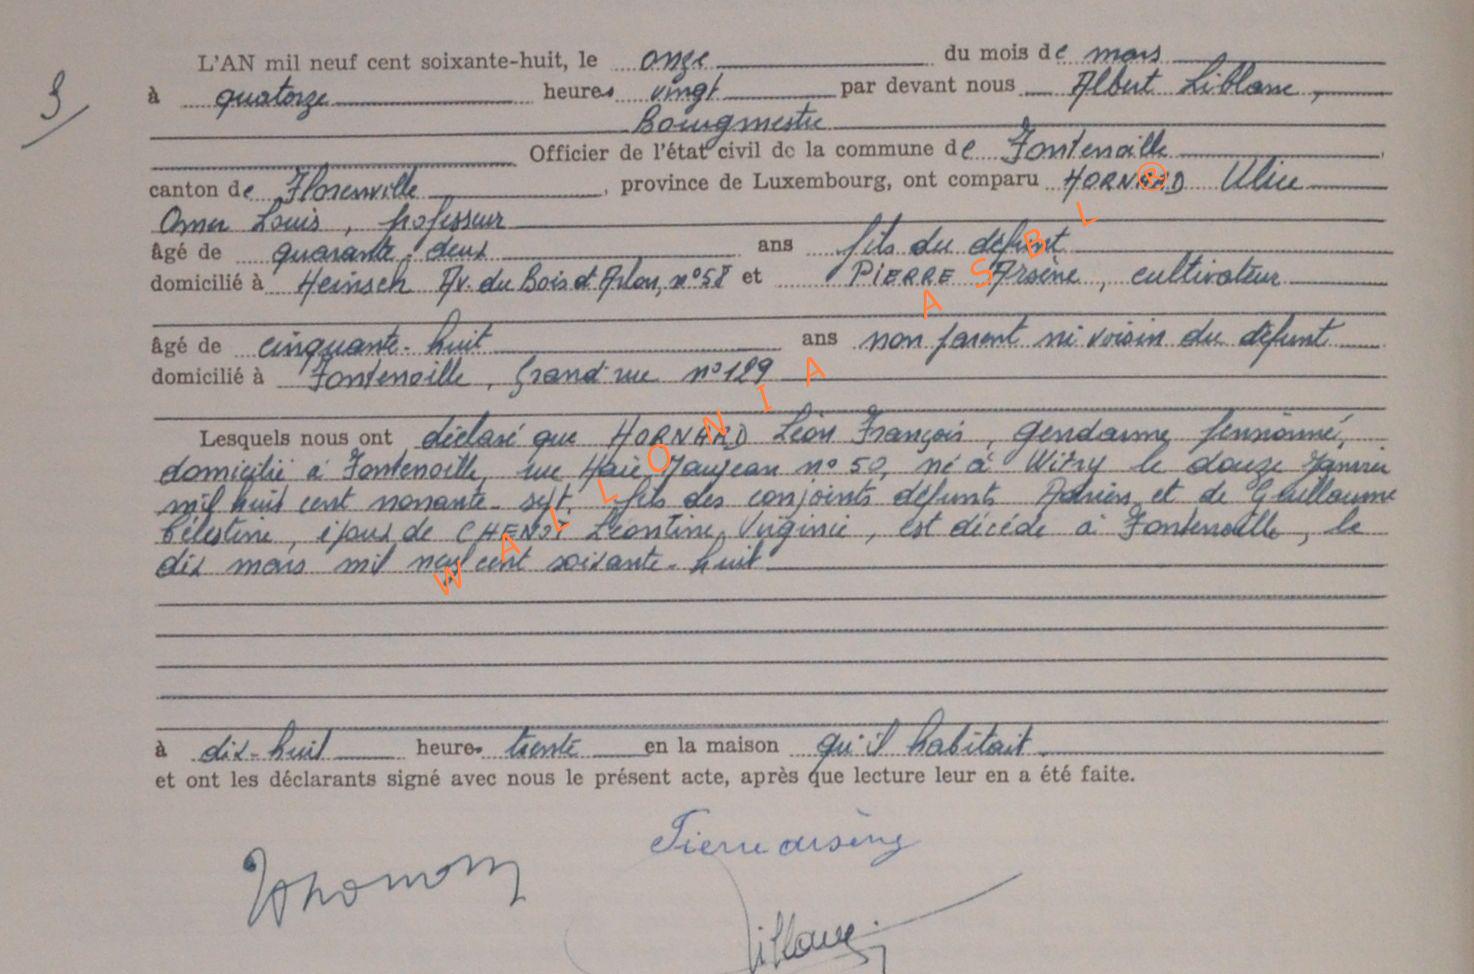 L'AN mil neuf cent soixante-huit, le onze du mois de mars
3
à quatorze heures vingt par devant nous Albert Liblanc,
Bourgmestre
Officier de l'état civil de la commune de Fontenoille
canton de Florenville, province de Luxembourg, ont comparu HORNARD
Omer Louis, professeur
âgé de quarante-deux ans fils du défunt
domicilié à Heinsch Av. du Bois d'Arlon, n° 58 et PIERRE Arsène, cultivateur
âgé de cinquante-huit ans non parent ni voisin du défunt
domicilié à Fontenoille, Grand-rue n° 129
Lesquels nous ont déclaré que HORNARD Léon François, gendarme pensionné,
domicilié à Fontenoille, rue Haie Maujean n° 50, né à Witry le douze Janvier
mil huit cent nonante-sept, fils des conjoints défunts Adrien et de Guillaume
Célestine, époux de Léontine Virginie, est décédé à Fontenoille, le
dix mars mil neuf cent soixante-huit
à dix-huit heures trente en la maison qu'il habitait
et ont les déclarants signé avec nous le présent acte, après que lecture leur en a été faite.
Pierre arsène
WALLONIA ASBL ®